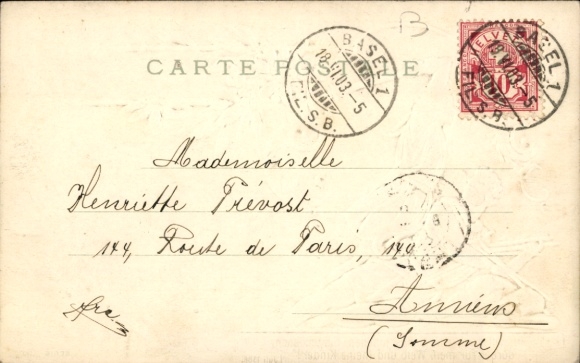 B
CARTE POSTALE
BASEL 1
18.VI.03.-5
FIL.S.B.
HELVETIA
10
BASEL 1
18.VI.03.-5
FIL.S.B.
Mademoiselle
Henriette Prévost
144, Route de Paris, 144
Amiens
(Somme)